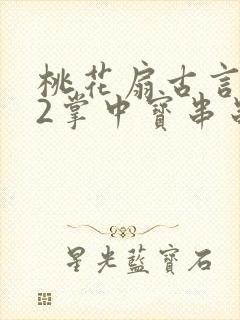 桃花扇古言
2掌中寶串
星光藍寶石